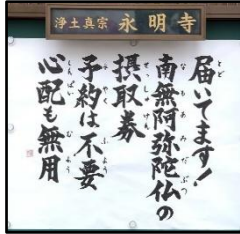 浄土真宗 永明寺
届いてます!
南無阿弥陀仏の
摂取券
予約は不要
心配も無用